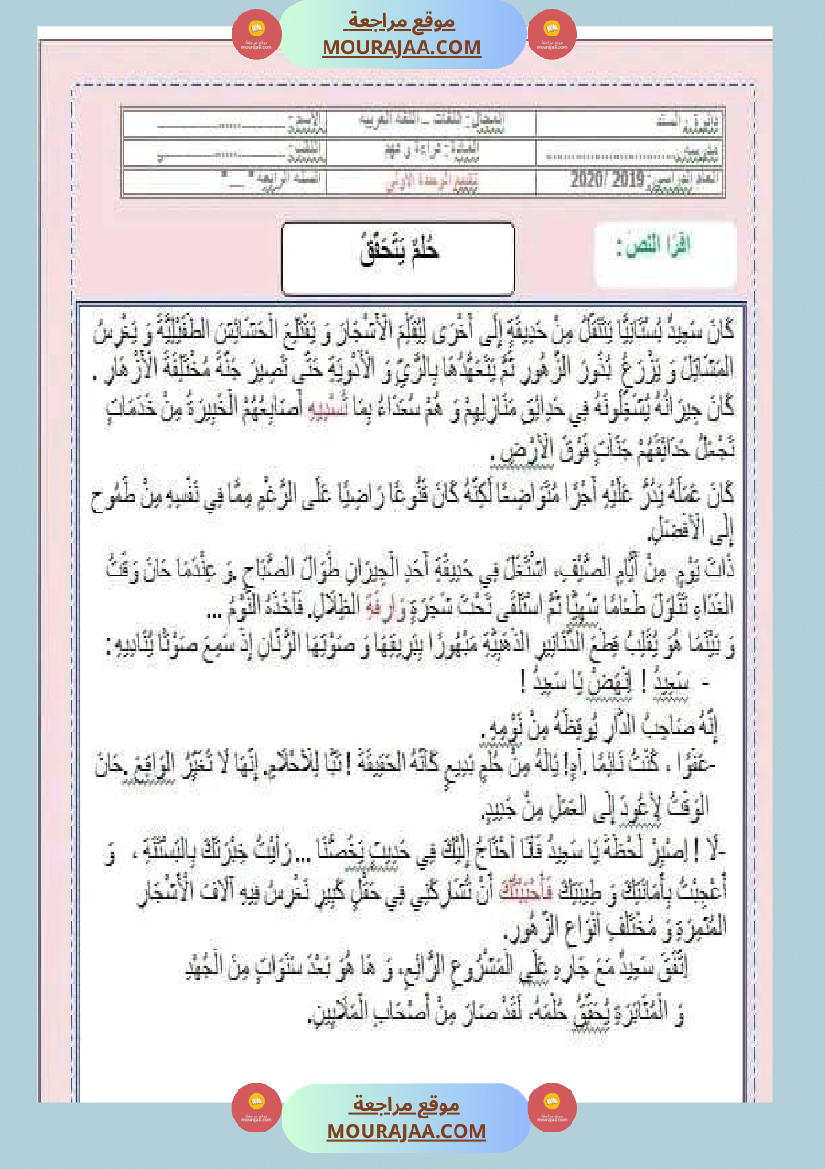 موقع مراجعة
MOURAJAA.COM
دائرة : السند
المجال : اللغات – اللغة العربية
الاسم:
مدرسة :
المادة : قراءة و فهم
اللقب:
العام الدراسي: 2019 /2020
تقييم الوحدة الاولى
السنة الرابعة " __ "
اقْرَأ النَّصَ :
حُلمٌ يَتَحَقَّقُ
كَانَ سَعِيدٌ بُسْتَانِيًّا يَتَنَقَّلُ مِنْ حَدِيقَةٍ إِلَى أُخْرَى لِيُقَلِّمَ الْأَشْجَارَ وَ يَقْتَلِعَ الْحَشَائِشَ الطُّفَيْلِيَّةَ وَ يَغْرِسُ
المَشَاتِلَ وَ يَزْرَعُ بُذُورَ الزُّهُورِ ثُمَّ يَتَعَهَّدُهَا بِالرَّيِّ وَ الْأَدْوِيَةِ حَتَّى تَصِيرَ جَنَّةً مُخْتَلِفَةَ الْأَزْهَارِ .
كَانَ جِيرَانُهُ يُشَغِّلُونَهُ فِي حَدَائِقِ مَنَازِلِهِمْ وَ هُمْ سُعَدَاءُ بِمَا تُسْدِيهِ أَصَابِعُهُمْ الْخَبِيرَةُ مِنْ خَدَمَاتٍ
تَجْعَلُ حَدَائِقَهُمْ جَنَّاتٍ فَوْقَ الْأَرْضِ .
كَانَ عَمَلُهُ يَدُرُّ عَلَيْهِ أَجْرًا مُتَوَاضِعًا لَكِنَّهُ كَانَ قَنُوعًا رَاضِيًا عَلَى الرَّغْمِ مِمَّا فِي نَفْسِهِ مِنْ طُمُوح
إِلَى الْأَفْضَلِ.
ذَاتَ يَوْمٍ مِنْ أَيَّامِ الصَّيْفِ، اشْتَغَلَ فِي حَدِيقَةِ أَحَدِ الْجِيرَانِ طُوَالَ الصَّبَاحِ .وَ عِنْدَمَا حَانَ وَقْتُ
الْغَدَاءِ تَنَاوَلَ طَعَامًا شَهِيًّا ثُمَّ اسْتَلْقَى تَحْتَ شَجَرَةٍ وَارِفَةِ الظِّلَالِ. فَأَخَذَهُ النَّوْمُ ...
وَ بَيْنَمَا هُوَ يُقَلِّبُ قِطَعَ الدَّنَانِيرِ الذَّهَبِيَّةِ مَبْهُورًا بِبَرِيقِهَا وَ صَوْتِهَا الرَّنَّانِ إِذْ سَمِعَ صَوْتًا يُنَادِيهِ :
- سَعِيدُ ! اِنْهَضْ يَا سَعِيدُ !
إِنَّهُ صَاحِبُ الدَّارِ يُوقِظُهُ مِنْ نَوْمِهِ .
-عَفْوًا ، كُنْتُ نَائِمًا .آهٍ! يَالَهُ مِنْ حُلْمٍ بَدِيعٍ كَأَنَّهُ الحَقِيقَةُ ! تَبًّا لِلْأَحْلَامِ. إِنَّهَا لَا تُغَيِّرُ الْوَاقِعَ .حَانَ
الْوَقْتُ لِأَعُودَ إِلَى العَمَلِ مِنْ جَدِيدٍ.
-لَا ! اِصْبِرْ لَحْظَةً يَا سَعِيدُ فَأَنَا أَحْتَاجُ إِلَيْكَ فِي حَدِيثٍ يَخُصُّنَا ... رَأَيْتُ خِبْرَتَكَ بِالبَسْتَنَةِ ، وَ
أُعْجِبْتُ بِأَمَانَتِكَ وَ طِيبَتِكَ فَأَحْبَبْتُكَ أَنْ تُشَارِكَنِي فِي حَقْلٍ كَبِيرٍ نَغْرِسُ فِيهِ آلَافَ الْأَشْجَارِ
المُثْمِرَةِ وَ مُخْتَلَفِ أَنْوَاعِ الزُّهُورِ.
اِتَّفَقَ سَعِيدٌ مَعَ جَارِهِ عَلَى الْمَشْرُوعِ الرَّائِعِ، وَ هَا هُوَ بَعْدَ سَنَوَاتٍ مِنَ الْجُهْدِ
وَ الْمُثَابَرَةِ يُحَقِّقُ حُلْمَهُ، لَقَدْ صَارَ مِنْ أَصْحَابِ الْمَلَايِينِ.
موقع مراجعة
MOURAJAA.COM